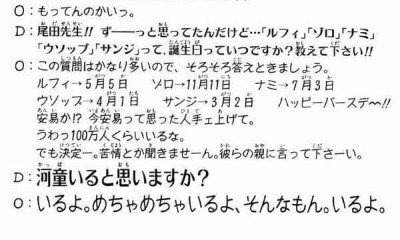 O:もってんのかいっ。
D:尾田先生!! ずーーっと思ってたんだけど…「ルフィ」「ゾロ」「ナミ」
「ウソップ」「サンジ」って、誕生日っていつですか?教えて下さい!!
O:この質問はかなり多いので、そろそろ答えときましょう。
ルフィ→5月5日 ゾロ→11月11日 ナミ→7月3日
ウソップ→4月1日 サンジ→3月2日 ハッピーバースデ〜!!
安易か!? 今安易って思った人手ェ上げて。
うわっ100万人くらいいるな。
でも決定ー。苦情とか聞きませーん。彼らの親に言って下さーい。
D:河童いると思いますか?
O:いるよ。めちゃめちゃいるよ、そんなもん。いるよ。